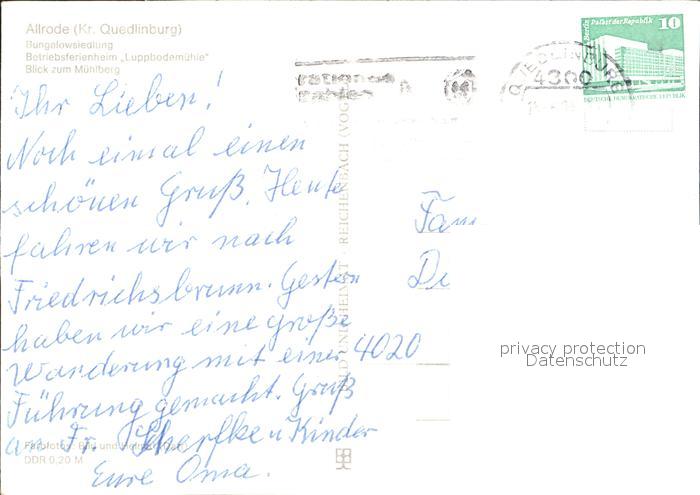 Allrode (Kr. Quedlinburg)
Bungalowsiedlung
Betriebsferienheim „Luppbodemühle"
Blick zum Mühlberg
Ihr Lieben!
Noch einmal einen
schönen Gruß. Heute
fahren wir nach
Friedrichsbrunn. Gestern
haben wir eine große
Wanderung mit einer
Führung gemacht. Gruß
an Fr. Scherfke u Kinder
Eure Oma.
Farbfoto: Bild und Heimat
DDR 0,20 M
BILD UND HEIMAT · REICHENBACH (VOGTL
QUEDLINBURG
4300
Berlin Palast der Republik 10
DEUTSCHE DEMOKRATISCHE REPUBLIK
Fam
Di
4020
privacy protection
Datenschutz